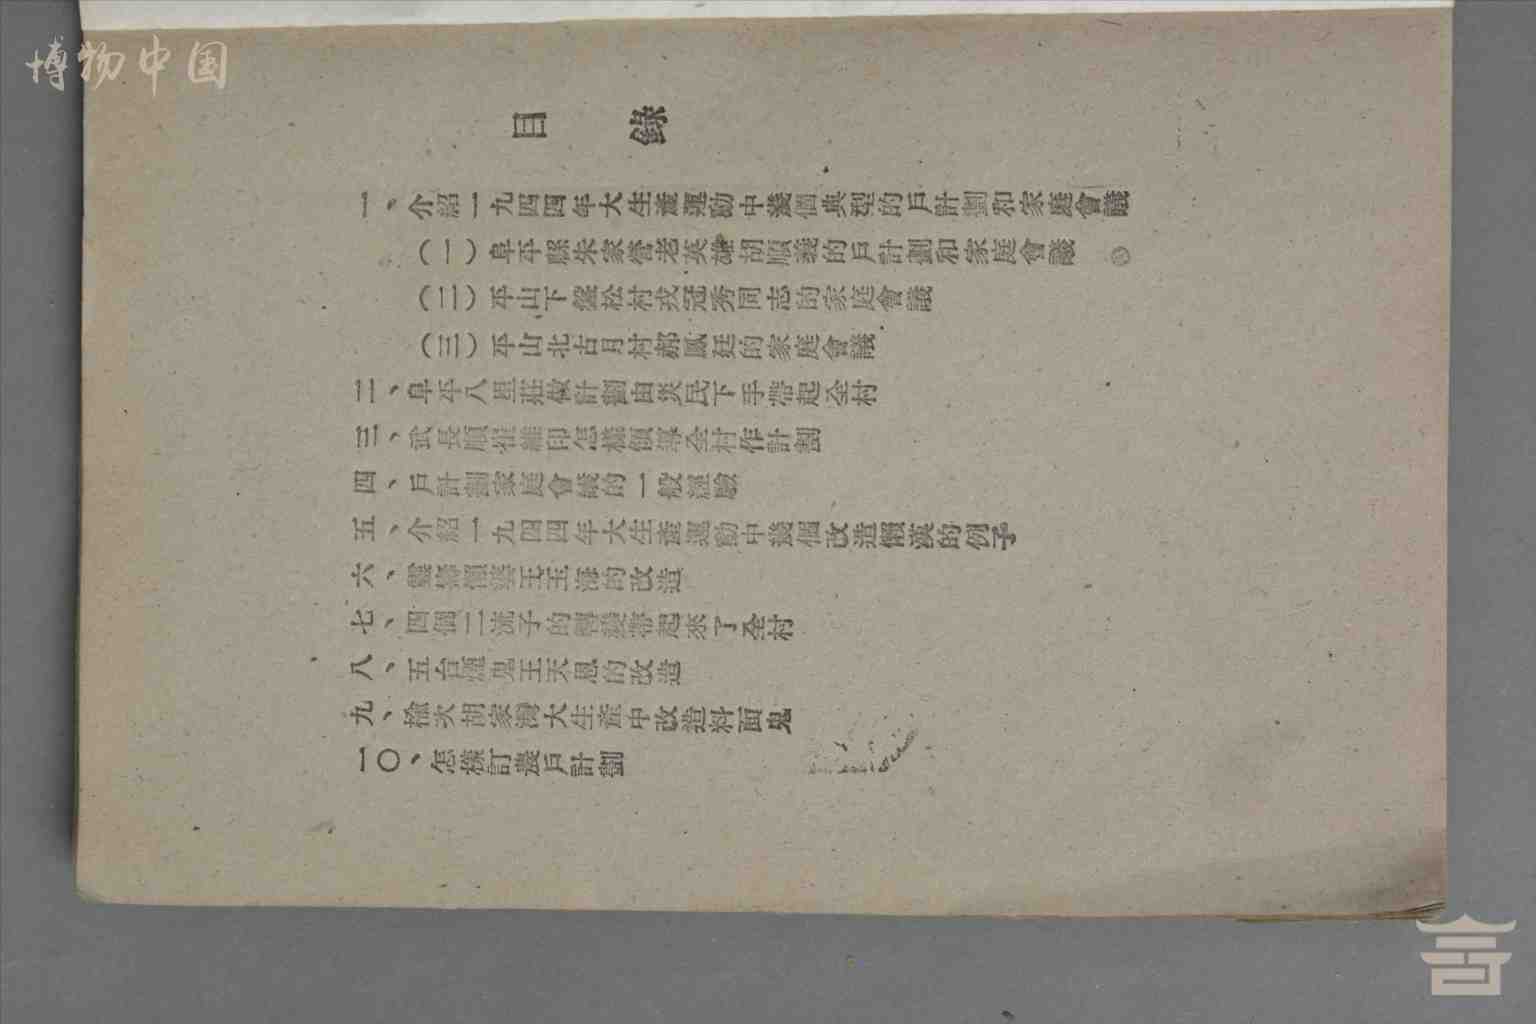 博物中国
目錄
一、介紹一九四四年大生產運動中幾個典型的戶計劃和家庭會議
（一）阜平縣朱家營老英雄胡順義的戶計劃和家庭會議
（二）平山下盤松村戎冠秀同志的家庭會議
（三）平山北古月村郝鳳廷的家庭會議
二、阜平八里莊做計劃由災民下手帶起全村
三、武長順崔維印怎樣領導全村作計劃
四、戶計劃家庭會議的一般經驗
五、介紹一九四四年大生產運動中幾個改造懶漢的例子
六、靈壽懶婆王玉海的改造
七、四個二流子的轉變帶起來了全村
八、五台煙鬼王天恩的改造
九、榆次胡家灣大生產中改造料面鬼
一〇、怎樣訂農戶計劃